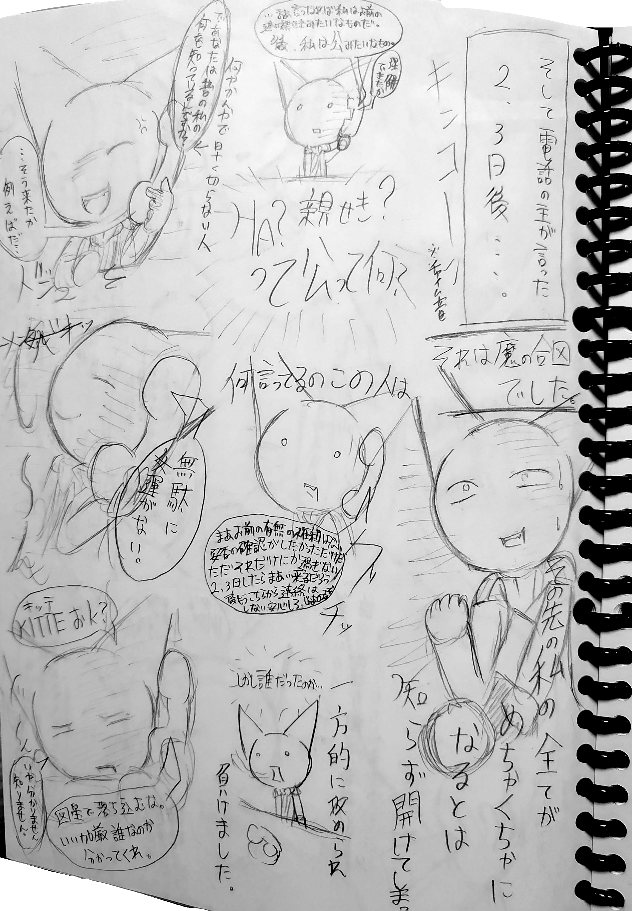 そして電話の主が言った
２、３日後…。
キンコーン
※チャイム音
それは魔の合図
でした。
その先の私の全てが
めちゃくちゃに
なるとは
知らず開けてしま。
私はお前の
みたいなものだ。
後、私は公みたいなものだ。
理解
できたか
HA？親せき？
って公って何？
何言ってるのこの人は
まあお前の有無の確認
安否の確認がしたかっただけだ
ただそれだけにか過ぎない
２、３日したらまあい来るだろう
ブ
チッ
しかし誰だったのか…
一方的に攻められ
負けました。
であなたは昔の私の
何を知っているんですか？
何やかんやで早く切らない人
…そう来たか
例えばだ…
無駄に
運がない。
キッテ
KITTEおk？
いや分かりません
知りません。
図星で落ち込むは。
いいか厳誰なのか
分かってくれ。